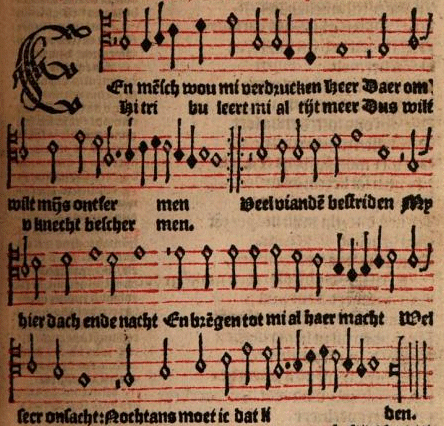 En mẽsch wou mi verdrucken Heer Daer om
hi tri bu leert mi al tijt meer Dus wilt
wilt mijs ontfer men Veel viandẽ bestriden My
v knecht bescher men.
hier dach ende nacht En brẽgen tot mi al haer macht Wel
seer onsacht: Nochtans moet ic dat li den.